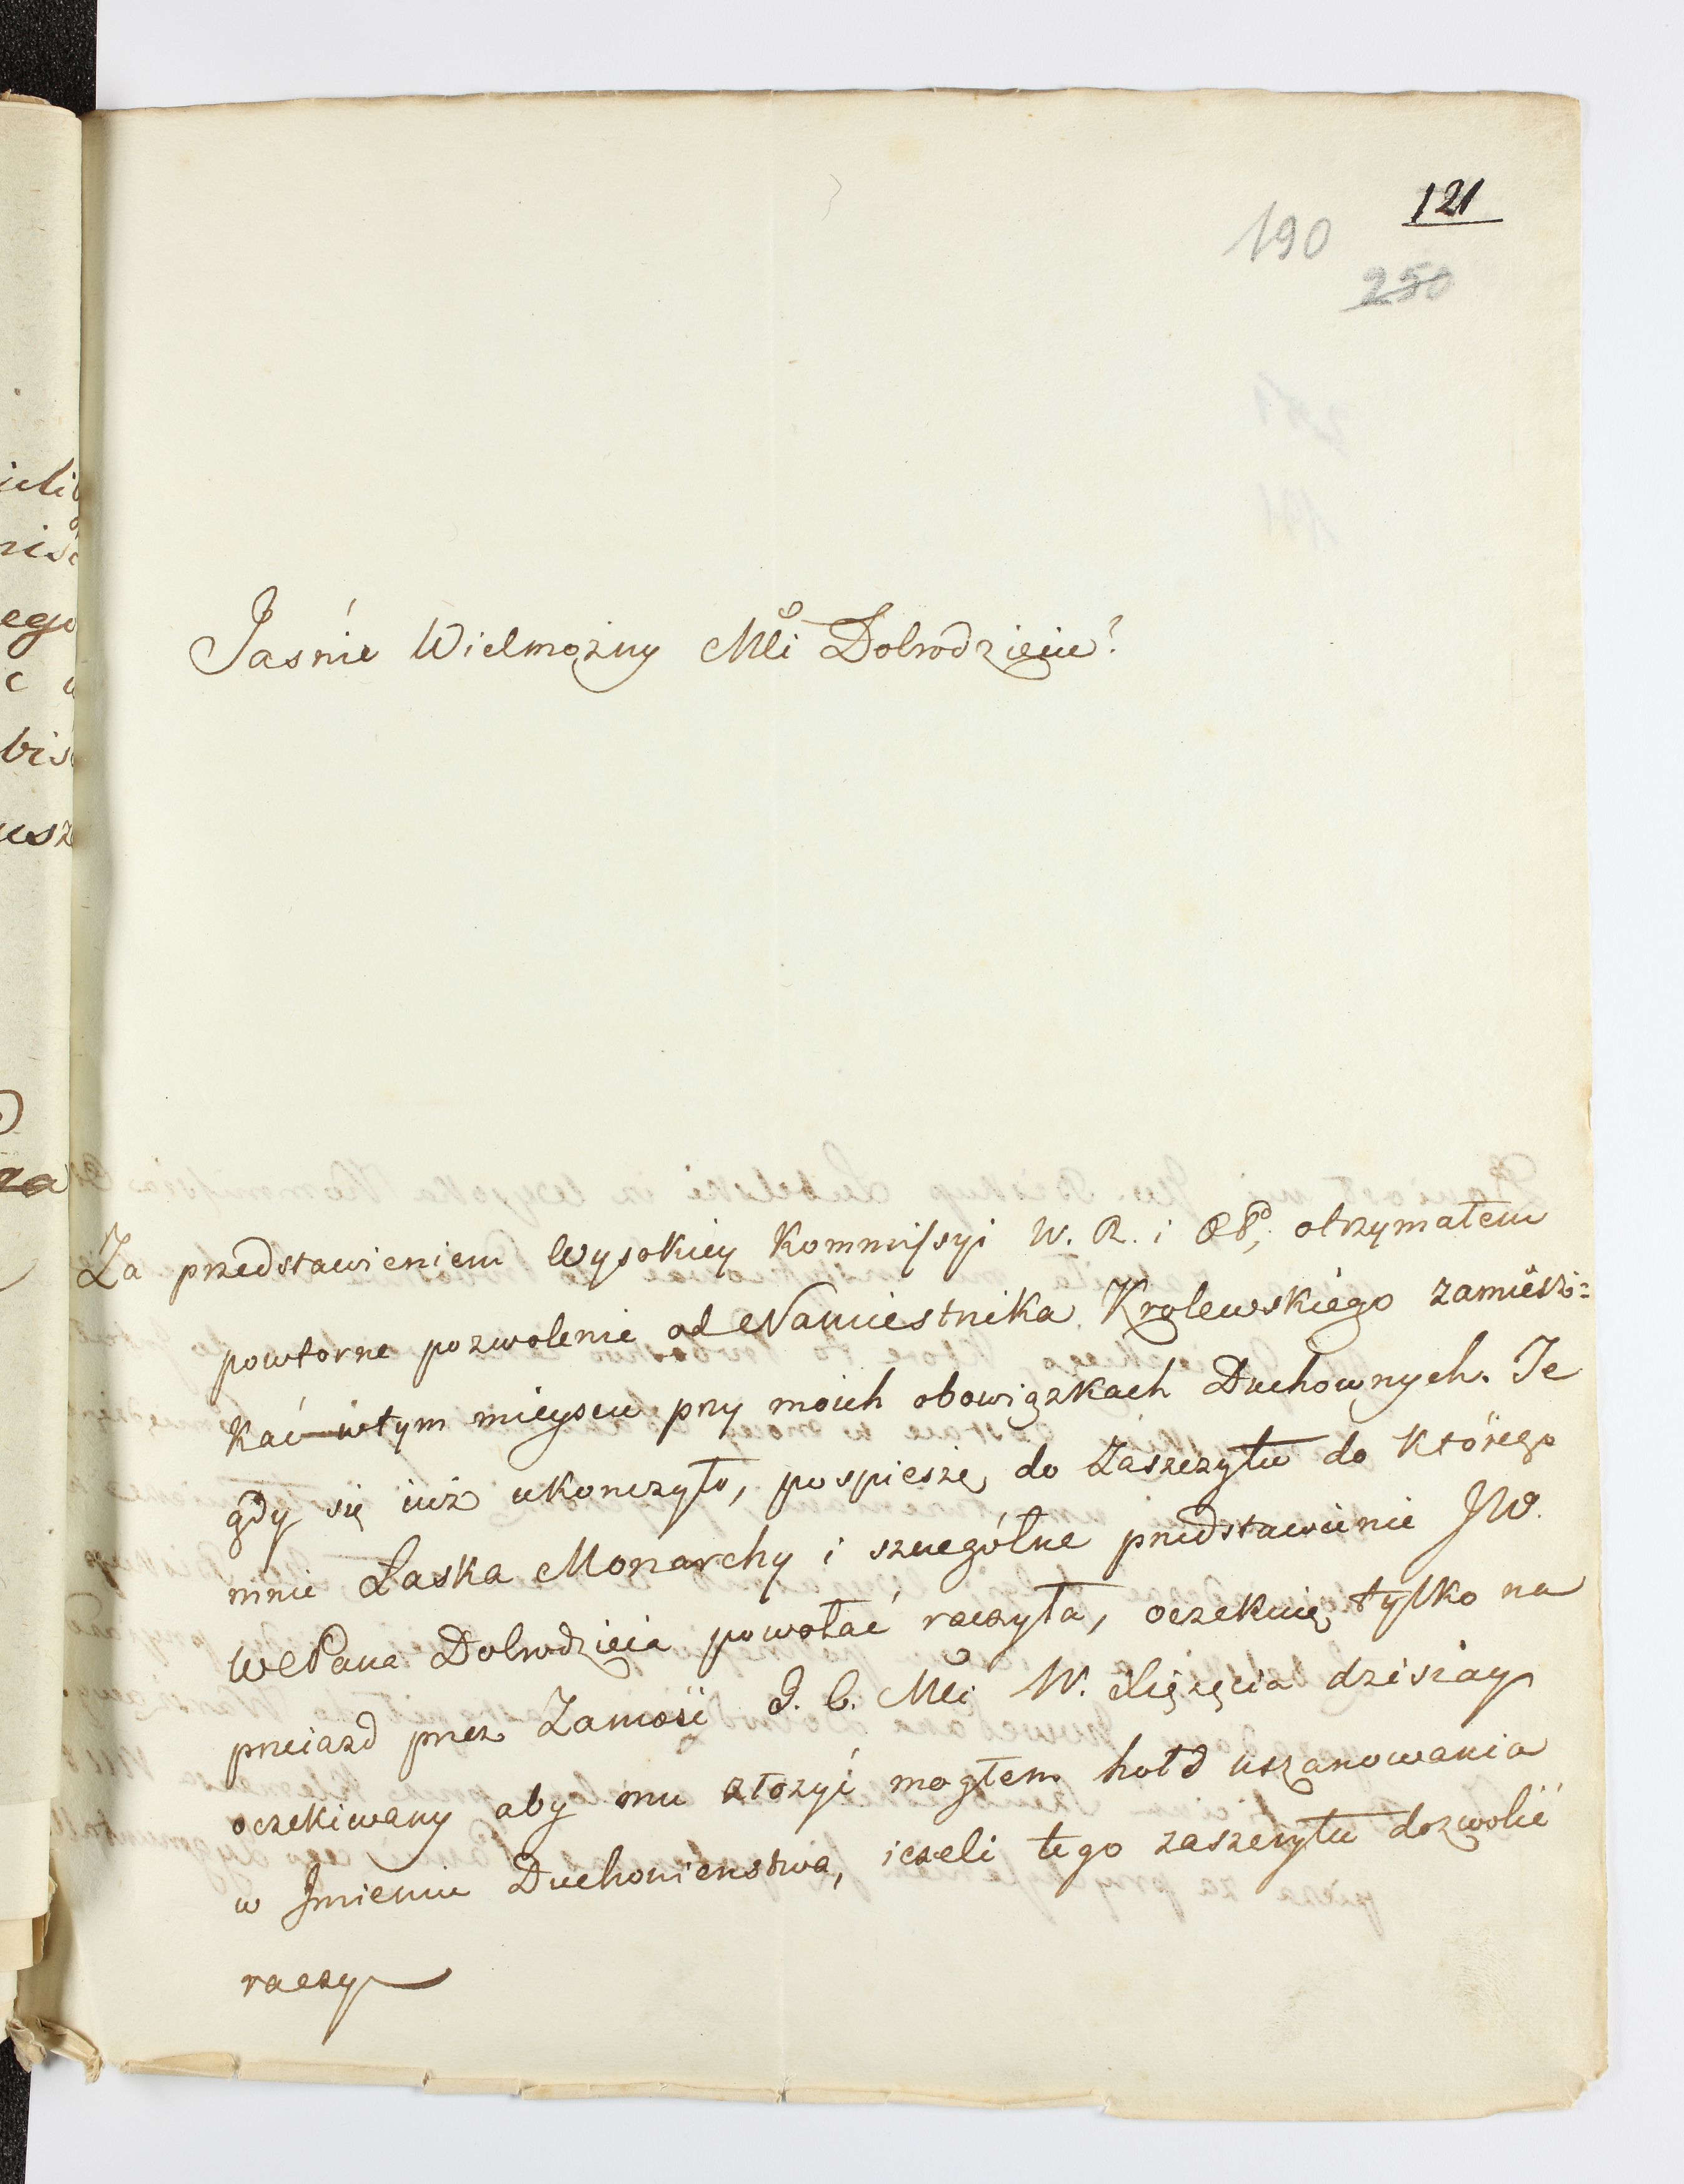 121
190
250
Jaśnie Wielmożny Mći Dobrodzieiu!
Za przedstawieniem Wysokiey Kommissyi W. R. i OP., otrzymałem
powtorne pozwolenie od Namiestnika Krolewskiego zamiesz=
kać w tym mieyscu przy moich obowiązkach Duchownych. Te
gdy się iuż ukonczyło, pospieszę do Zaszczytu do którego
mnie Łaska Monarchy i szczegółne przedstawienie JW.
WPana Dobrodzieia powołać raczyła, oczekuię tylko na
przeiazd przez Zamość J. C. Mći W. Xiężęcia dzisiay
oczekiwany aby mu złożyć mogłem hołd uszanowania
w Jmieniu Duchowienstwa, ieżeli tego zaszczytu dozwolić
raczy